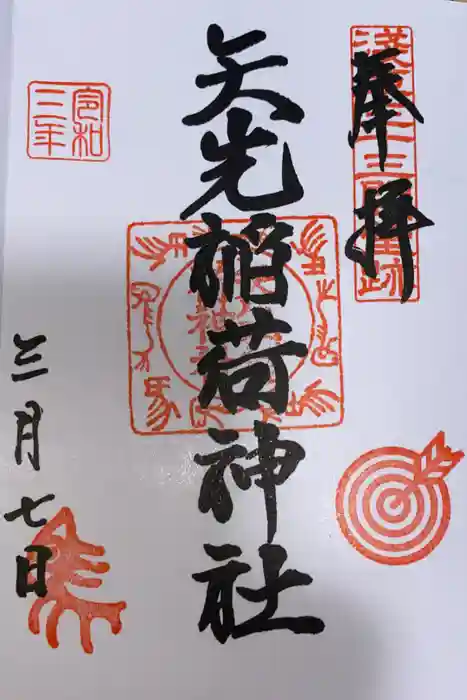 奉拝
矢先稲荷神社
令和
三年
三月七日